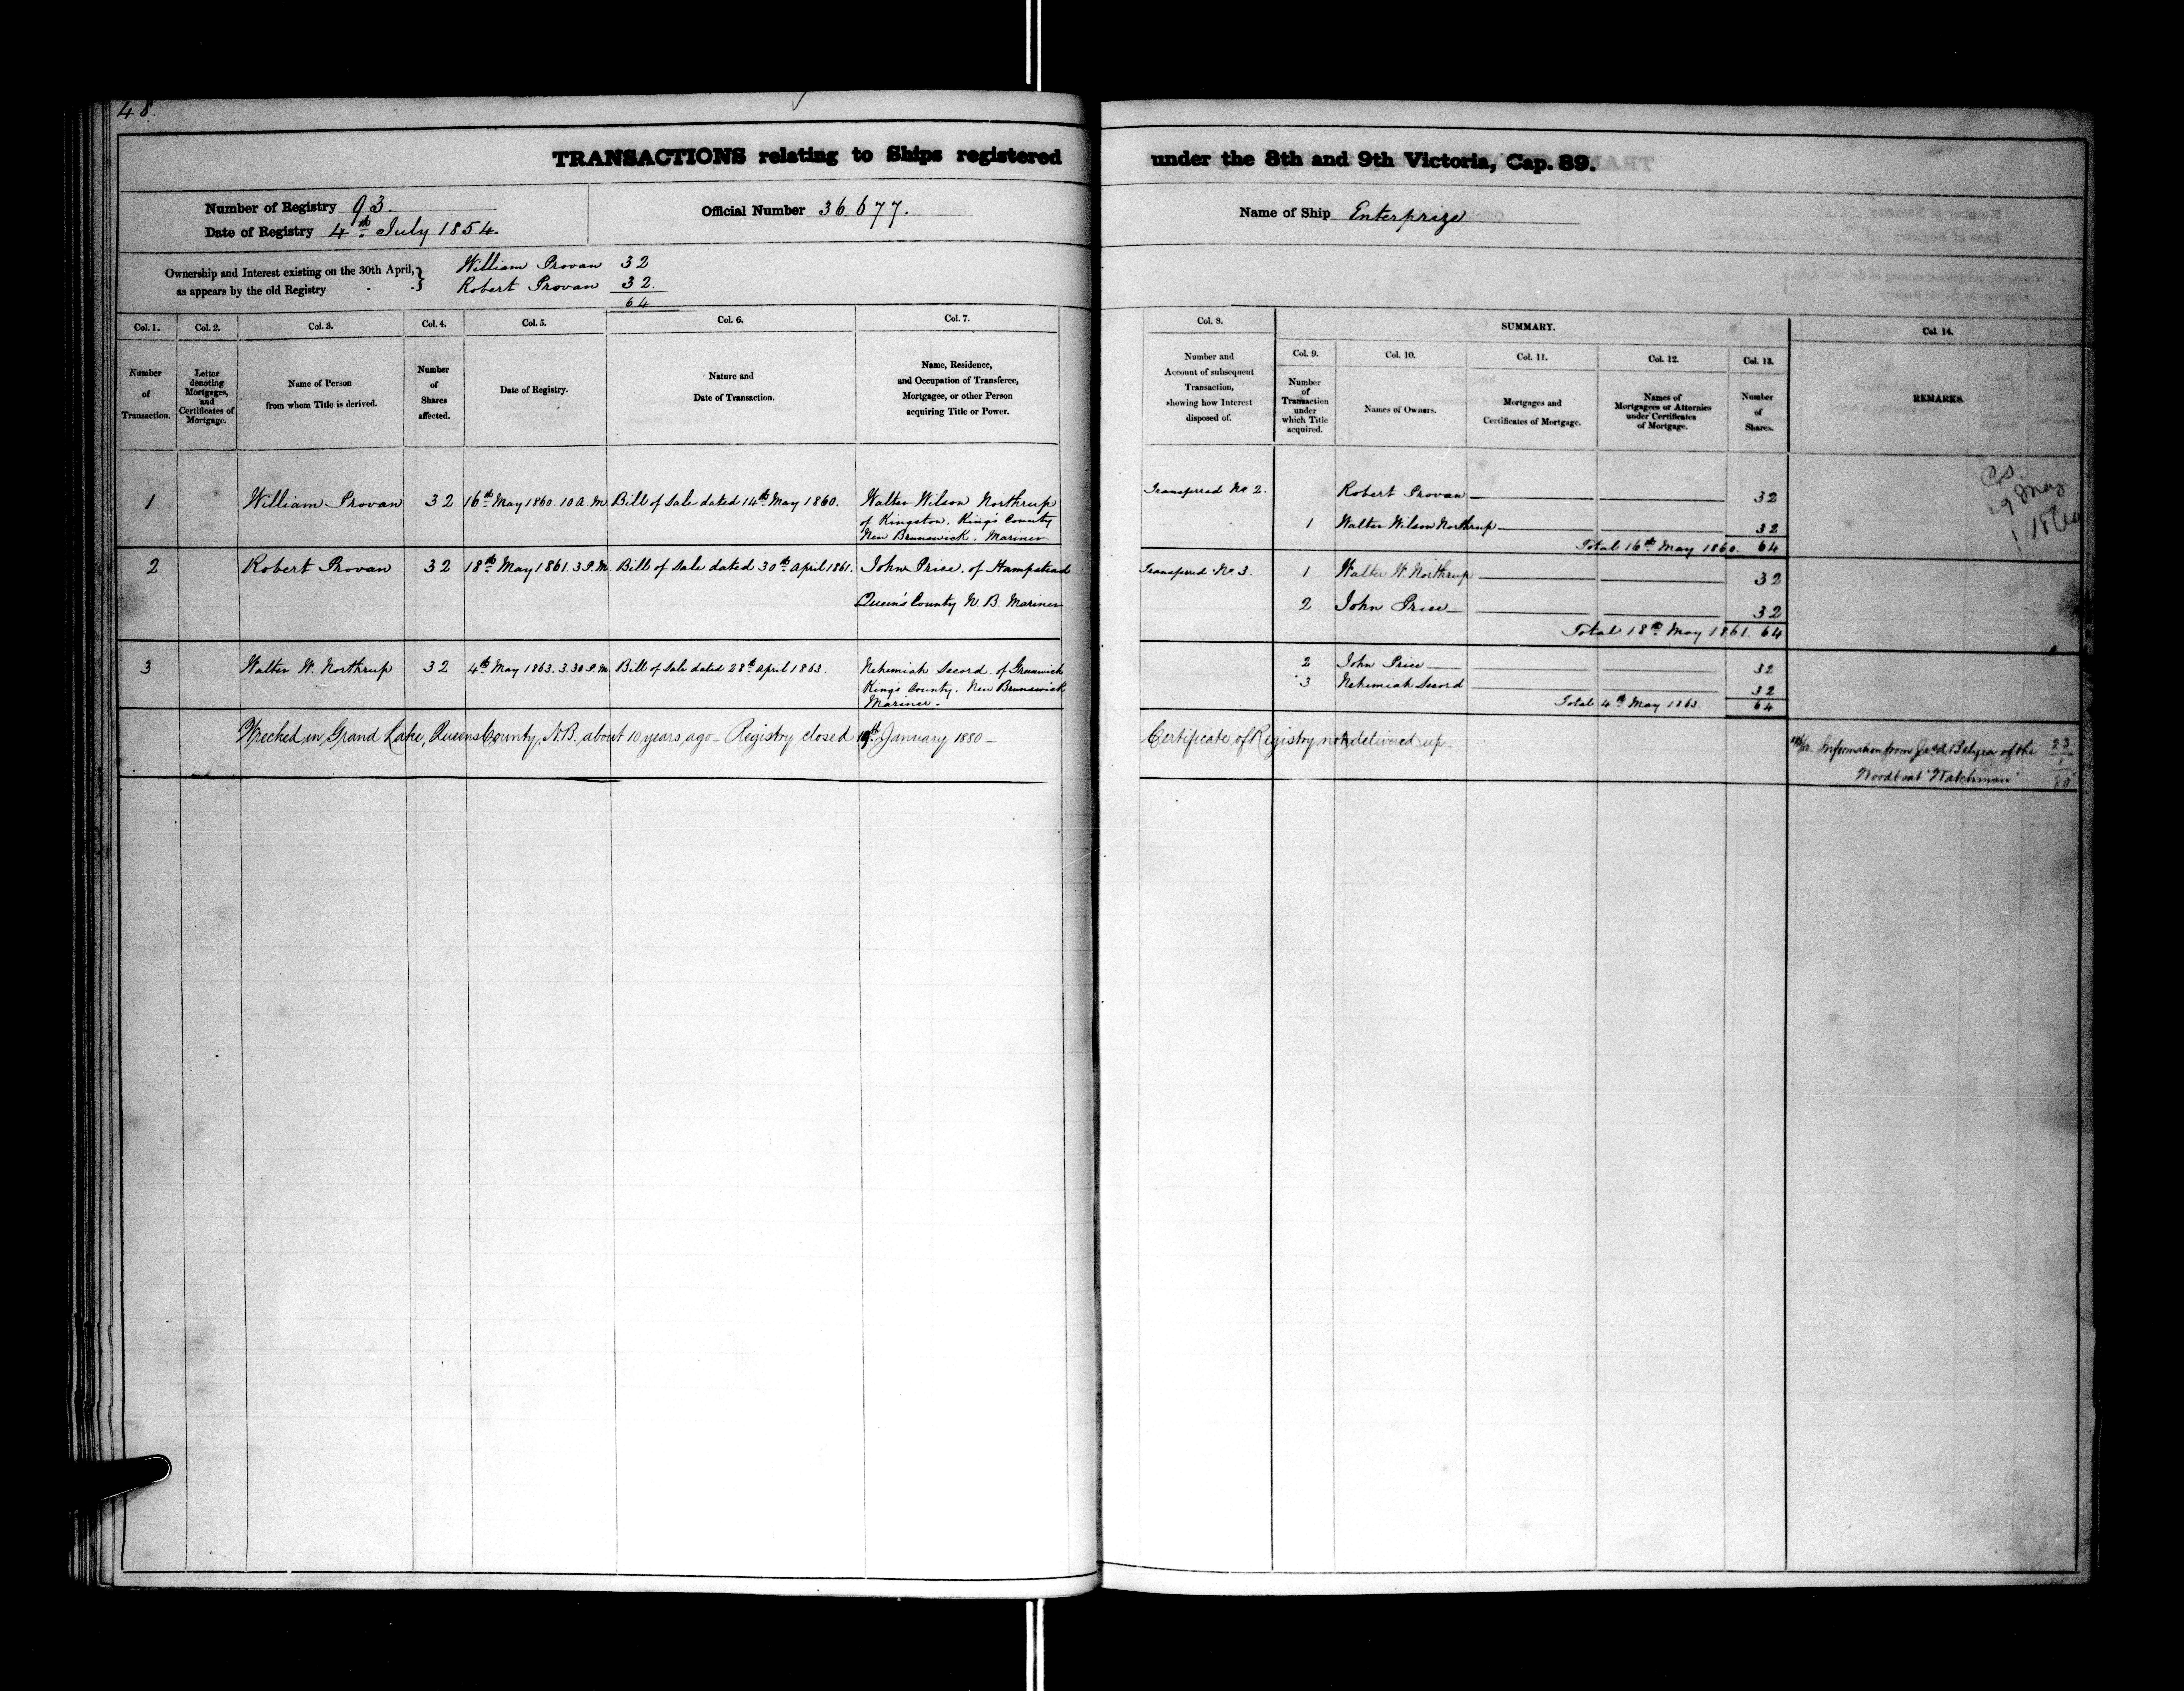 48.
TRANSACTIONS relating to Ships registered under the 8th and 9th Victoria, Cap. 89.
Number of Registry 93.
Date of Registry 4th July 1854.
Official Number 36677.
Name of Ship Enterprize
Ownership and Interest existing on the 30th April,
as appears by the old Registry
William Provan 32
Robert Provan 32.
64
Col. 1.
Number
of
Transaction.
Col. 2.
Letter
denoting
Mortgages,
and
Certificates of
Mortgage.
Col. 3.
Name of Person
from whom Title is derived.
Col. 4.
Number
of
Shares
affected.
Col. 5.
Date of Registry.
Col. 6.
Nature and
Date of Transaction.
Col. 7.
Name, Residence,
and Occupation of Transferee,
Mortgagee, or other Person
acquiring Title or Power.
Col. 8.
Number and
Account of subsequent
Transaction,
showing how Interest
disposed of.
SUMMARY.
Col. 9.
Number
of
Transaction
under
which Title
acquired.
Col. 10.
Names of Owners.
Col. 11.
Mortgages and
Certificates of Mortgage.
Col. 12.
Names of
Mortgagees or Attornies
under Certificates
of Mortgage.
Col. 13.
Number
of
Shares.
Col. 14.
REMARKS.
1 William Provan 32 16th May 1860. 10 A.M. Bill of Sale dated 14th May 1860. Walter Wilson Northrup
of Kingston. King's County
New Brunswick. Mariner
Transferred No 2. Robert Provan 32
1 Walter Wilson Northrup 32
Total 16th May 1860. 64
29 May
2 Robert Provan 32 18th May 1861. 3 P.M. Bill of Sale dated 30th April 1861. John Price. of Hampstead
Queen's County N. B. Mariner
Transferred No 3. 1 Walter W. Northrup 32
2 John Price 32
Total 18th May 1861. 64
3 Walter W. Northrup 32 4th May 1863. 3.30 P.M. Bill of Sale dated 28th April 1863. Nehemiah Secord of Greenwich
King's County. New Brunswick
Mariner.
2 John Price 32
3 Nehemiah Secord 32
Total 4th May 1863. 64
Wrecked in Grand Lake, Queens County, N.B. about 10 years ago - Registry closed 19th January 1880 -
Certificate of Registry not delivered up -
Information from Belyea of the
Woodboat "Watchman"
23
1
80